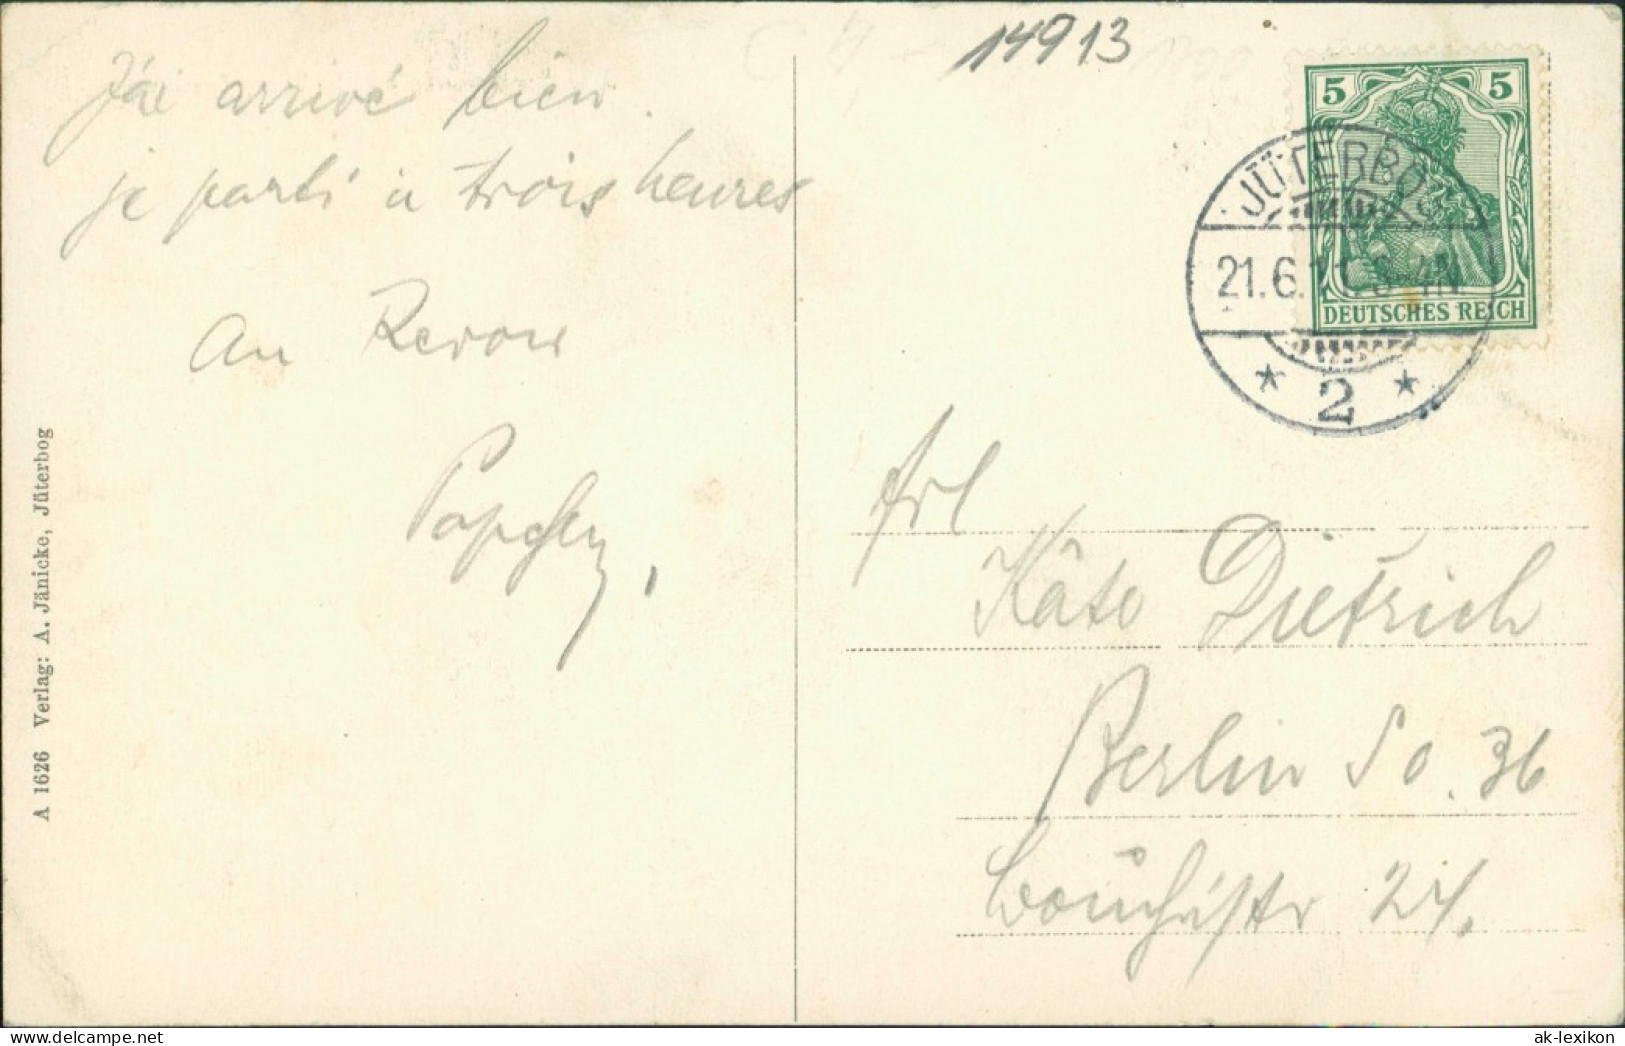 14913
5 5
DEUTSCHES REICH
JÜTERBOG
21.6.11. 3-4N
* 2 *
J'ai arrivé bien.
je parti à trois heures
au Revoir
Frl
Käte Dietrich
Berlin So. 36
24.
A 1626 Verlag: A. Jänicke, Jüterbog
ak-lexikon